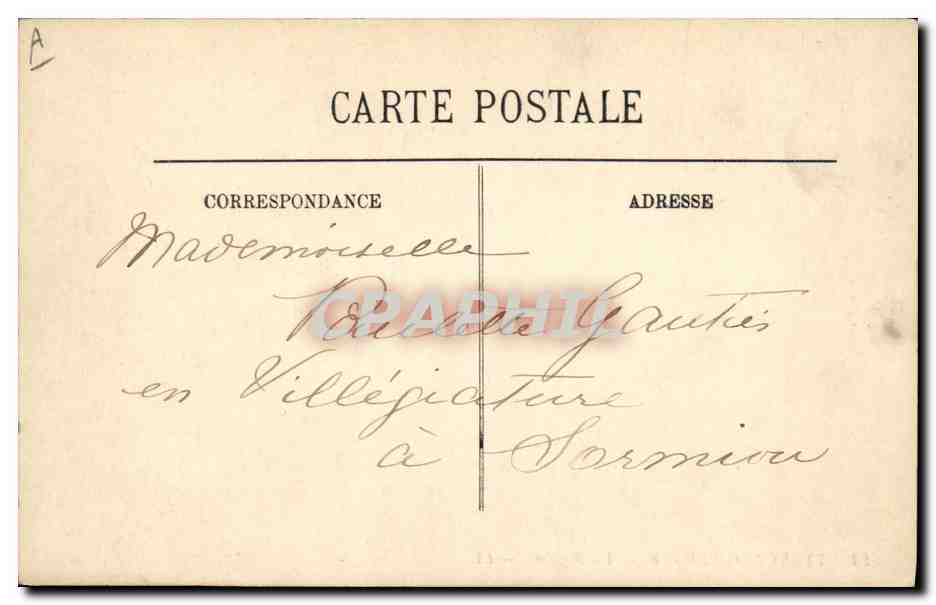 A
CARTE POSTALE
CORRESPONDANCE
ADRESSE
Mademoiselle
Paulette Gautier
en Villégiature
à Sormiou
CPAPHIL